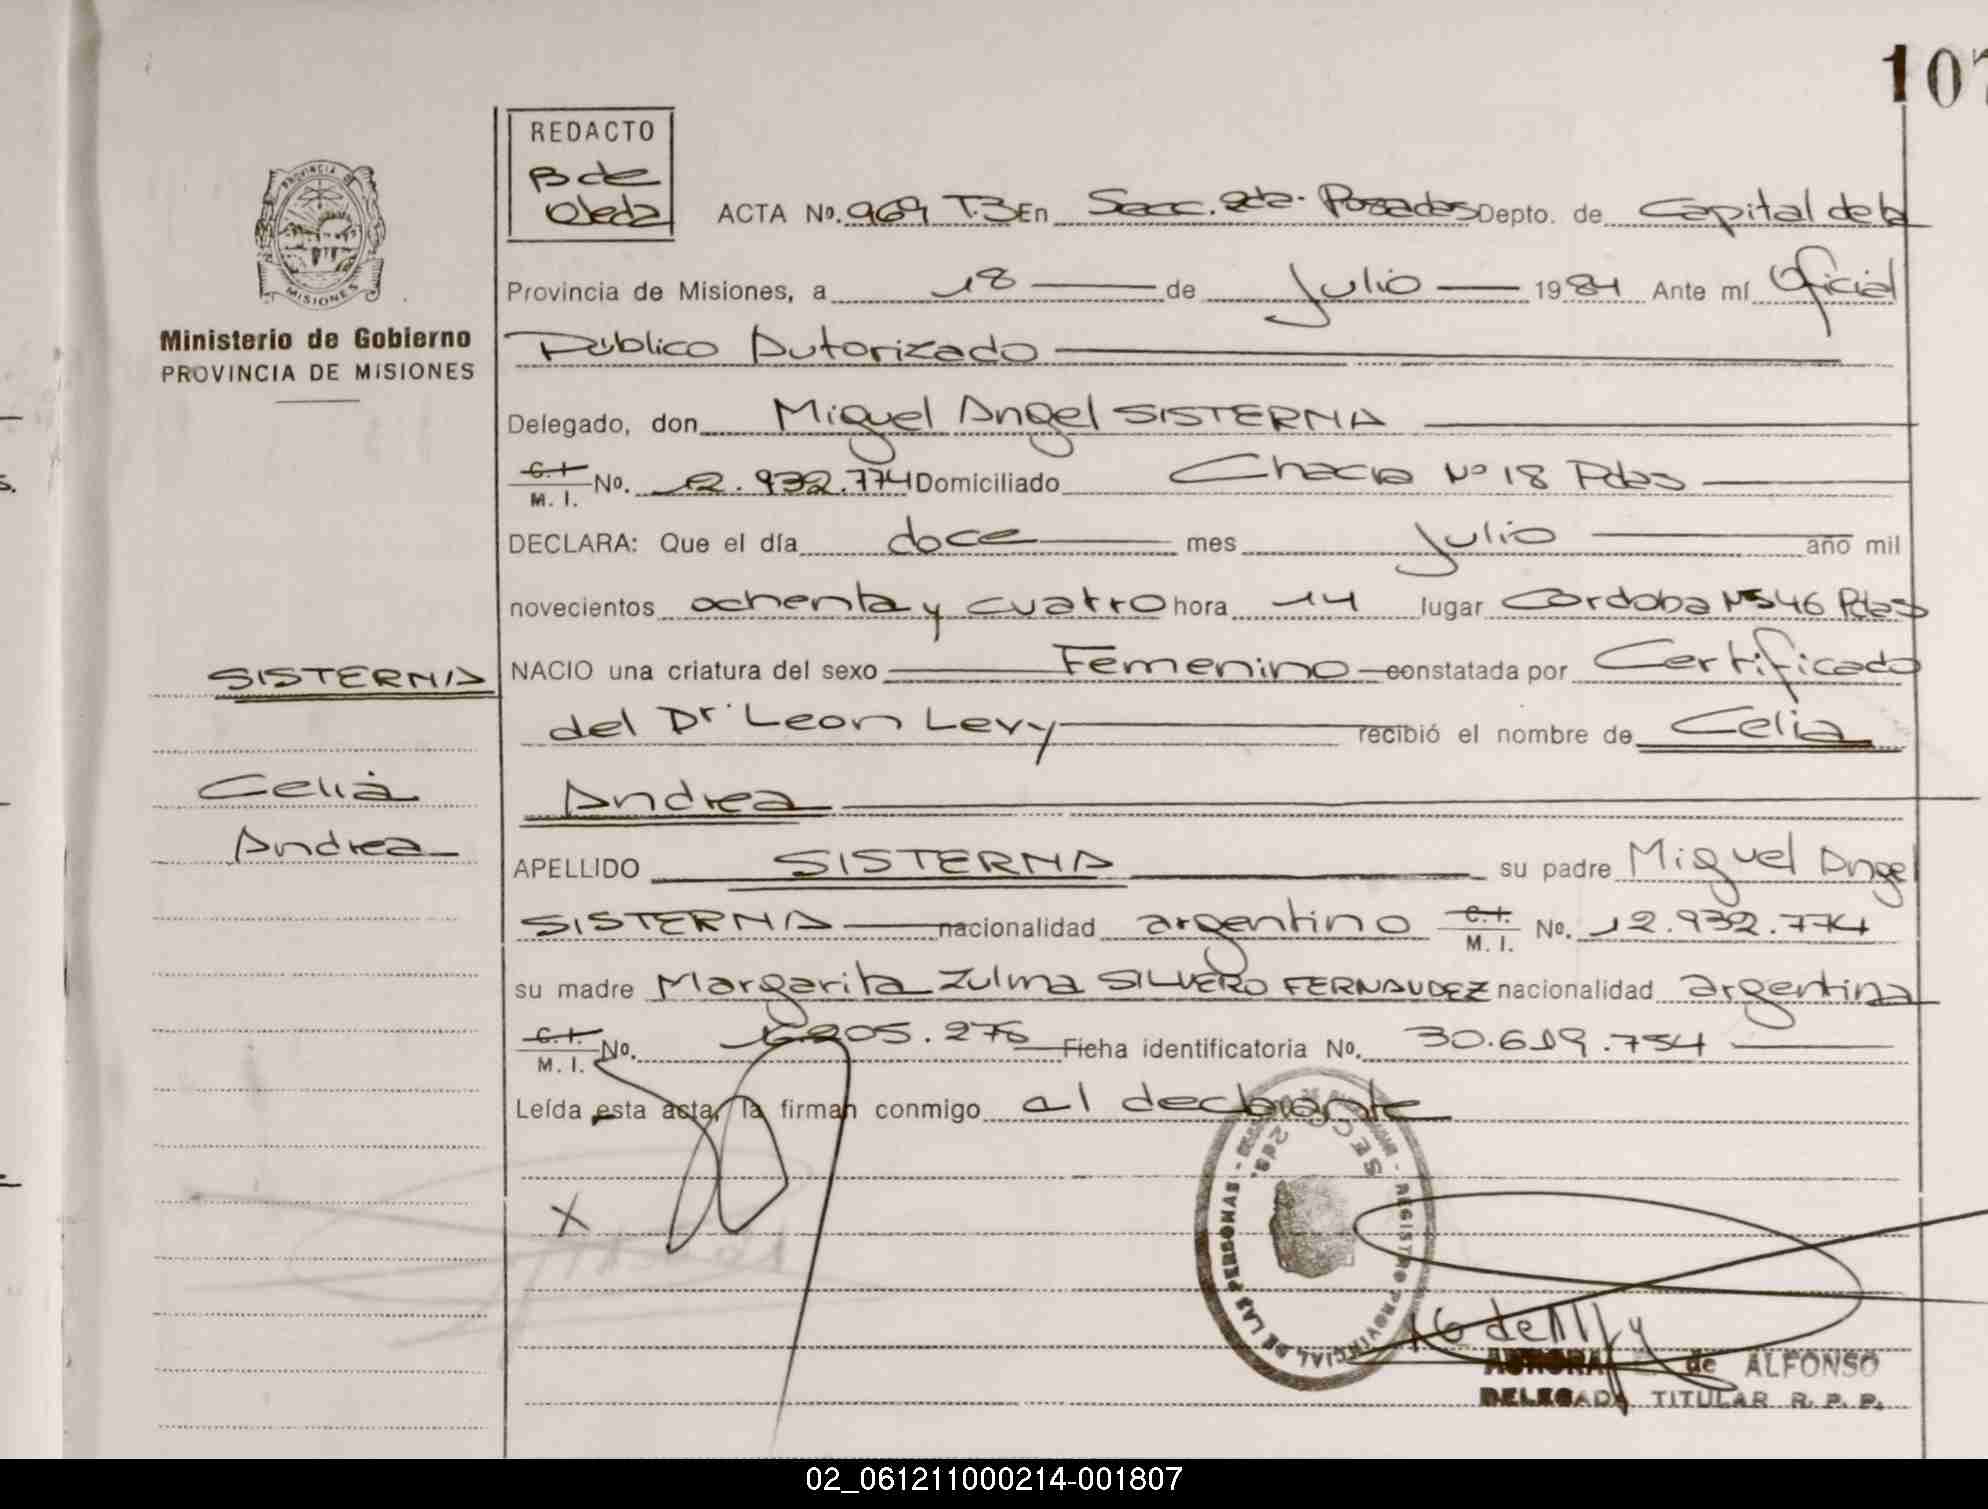 107
REDACTO
B de
Ojeda
PROVINCIA DE
MISIONES
Ministerio de Gobierno
PROVINCIA DE MISIONES
ACTA No. 969 T.3 En Secc. 2da. Posadas Depto. de Capital de la
Provincia de Misiones, a 18 de Julio 1984 Ante mí Oficial
Público Autorizado
Delegado, don Miguel Angel SISTERNA
C.I. / M. I. No. 12.932.774 Domiciliado Chacra Nº 18 Pdas
DECLARA: Que el día doce mes Julio año mil
novecientos ochenta y cuatro hora 14 lugar Cordoba Nº 546 Pdas
SISTERNA
NACIO una criatura del sexo Femenino constatada por Certificado
del Dr. Leon Levy recibió el nombre de Celia
Celia
Andrea
Andrea
APELLIDO SISTERNA su padre Miguel Angel
SISTERNA nacionalidad argentino C.I. / M. I. No. 12.932.774
su madre Margarita Zulma SILVERO FERNANDEZ nacionalidad argentina
C.I. / M. I. No. .205.276 Ficha identificatoria No. 30.619.754
Leída esta acta, la firman conmigo al declarante
X
REGISTRO PROVINCIAL DE LAS PERSONAS
SECC.
2da.
AURORA de ALFONSO
DELEGADA TITULAR R. P. P.
02_061211000214-001807